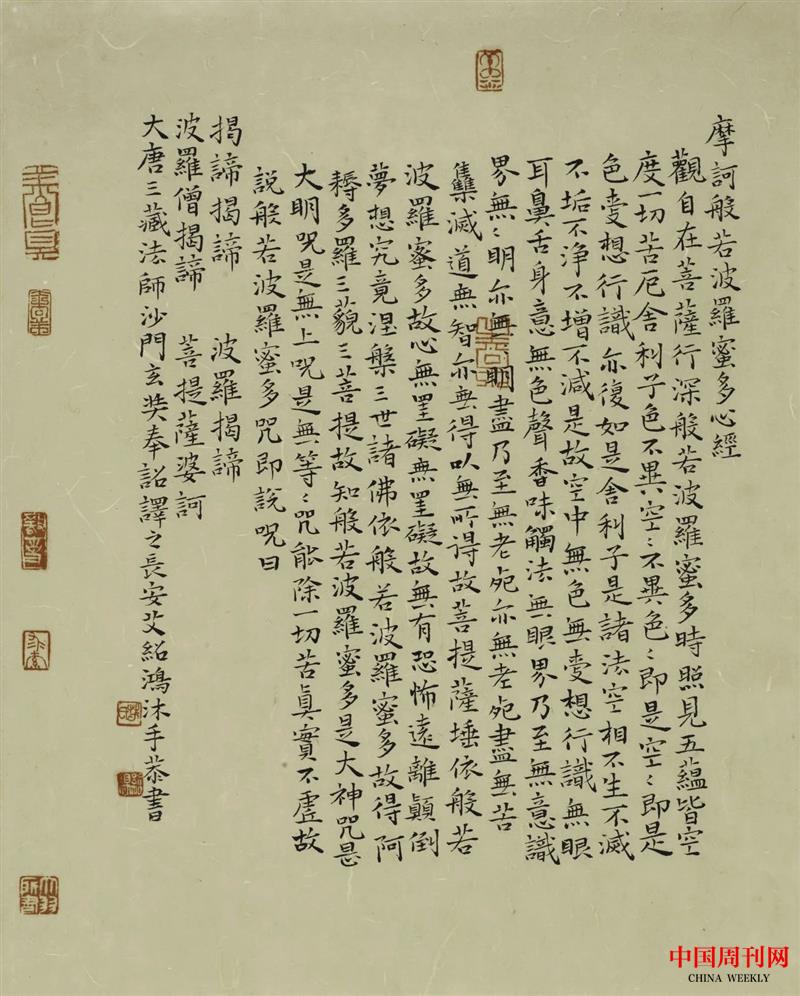 摩訶般若波羅蜜多心經
觀自在菩薩行深般若波羅蜜多時照見五蘊皆空
度一切苦厄舍利子色不異空〻不異色〻即是空〻即是
色受想行識亦復如是舍利子是諸法空相不生不滅
不垢不淨不增不減是故空中無色無受想行識無眼
耳鼻舌身意無色聲香味觸法無眼界乃至無意識
界無〻明亦無無明盡乃至無老死亦無老死盡無苦
集滅道無智亦無得以無所得故菩提薩埵依般若
波羅蜜多故心無罣礙無罣礙故無有恐怖遠離顛倒
夢想究竟涅槃三世諸佛依般若波羅蜜多故得阿
耨多羅三藐三菩提故知般若波羅蜜多是大神咒是
大明咒是無上咒是無等〻咒能除一切苦真實不虛故
說般若波羅蜜多咒即說咒曰
揭諦揭諦 波羅揭諦
波羅僧揭諦 菩提薩婆訶
大唐三藏法師沙門玄奘奉詔譯之長安艾紹鴻沐手恭書
中国周刊网
CHINA WEEKLY